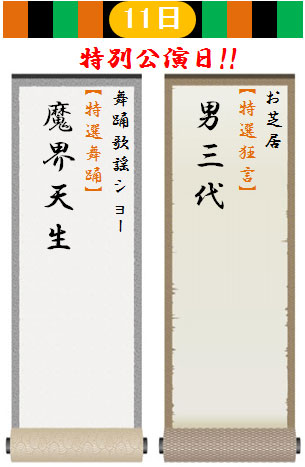 11日
特別公演日!!
お芝居
【特選狂言】
男三代
舞踊歌謡ショー
【特選舞踊】
魔界天生